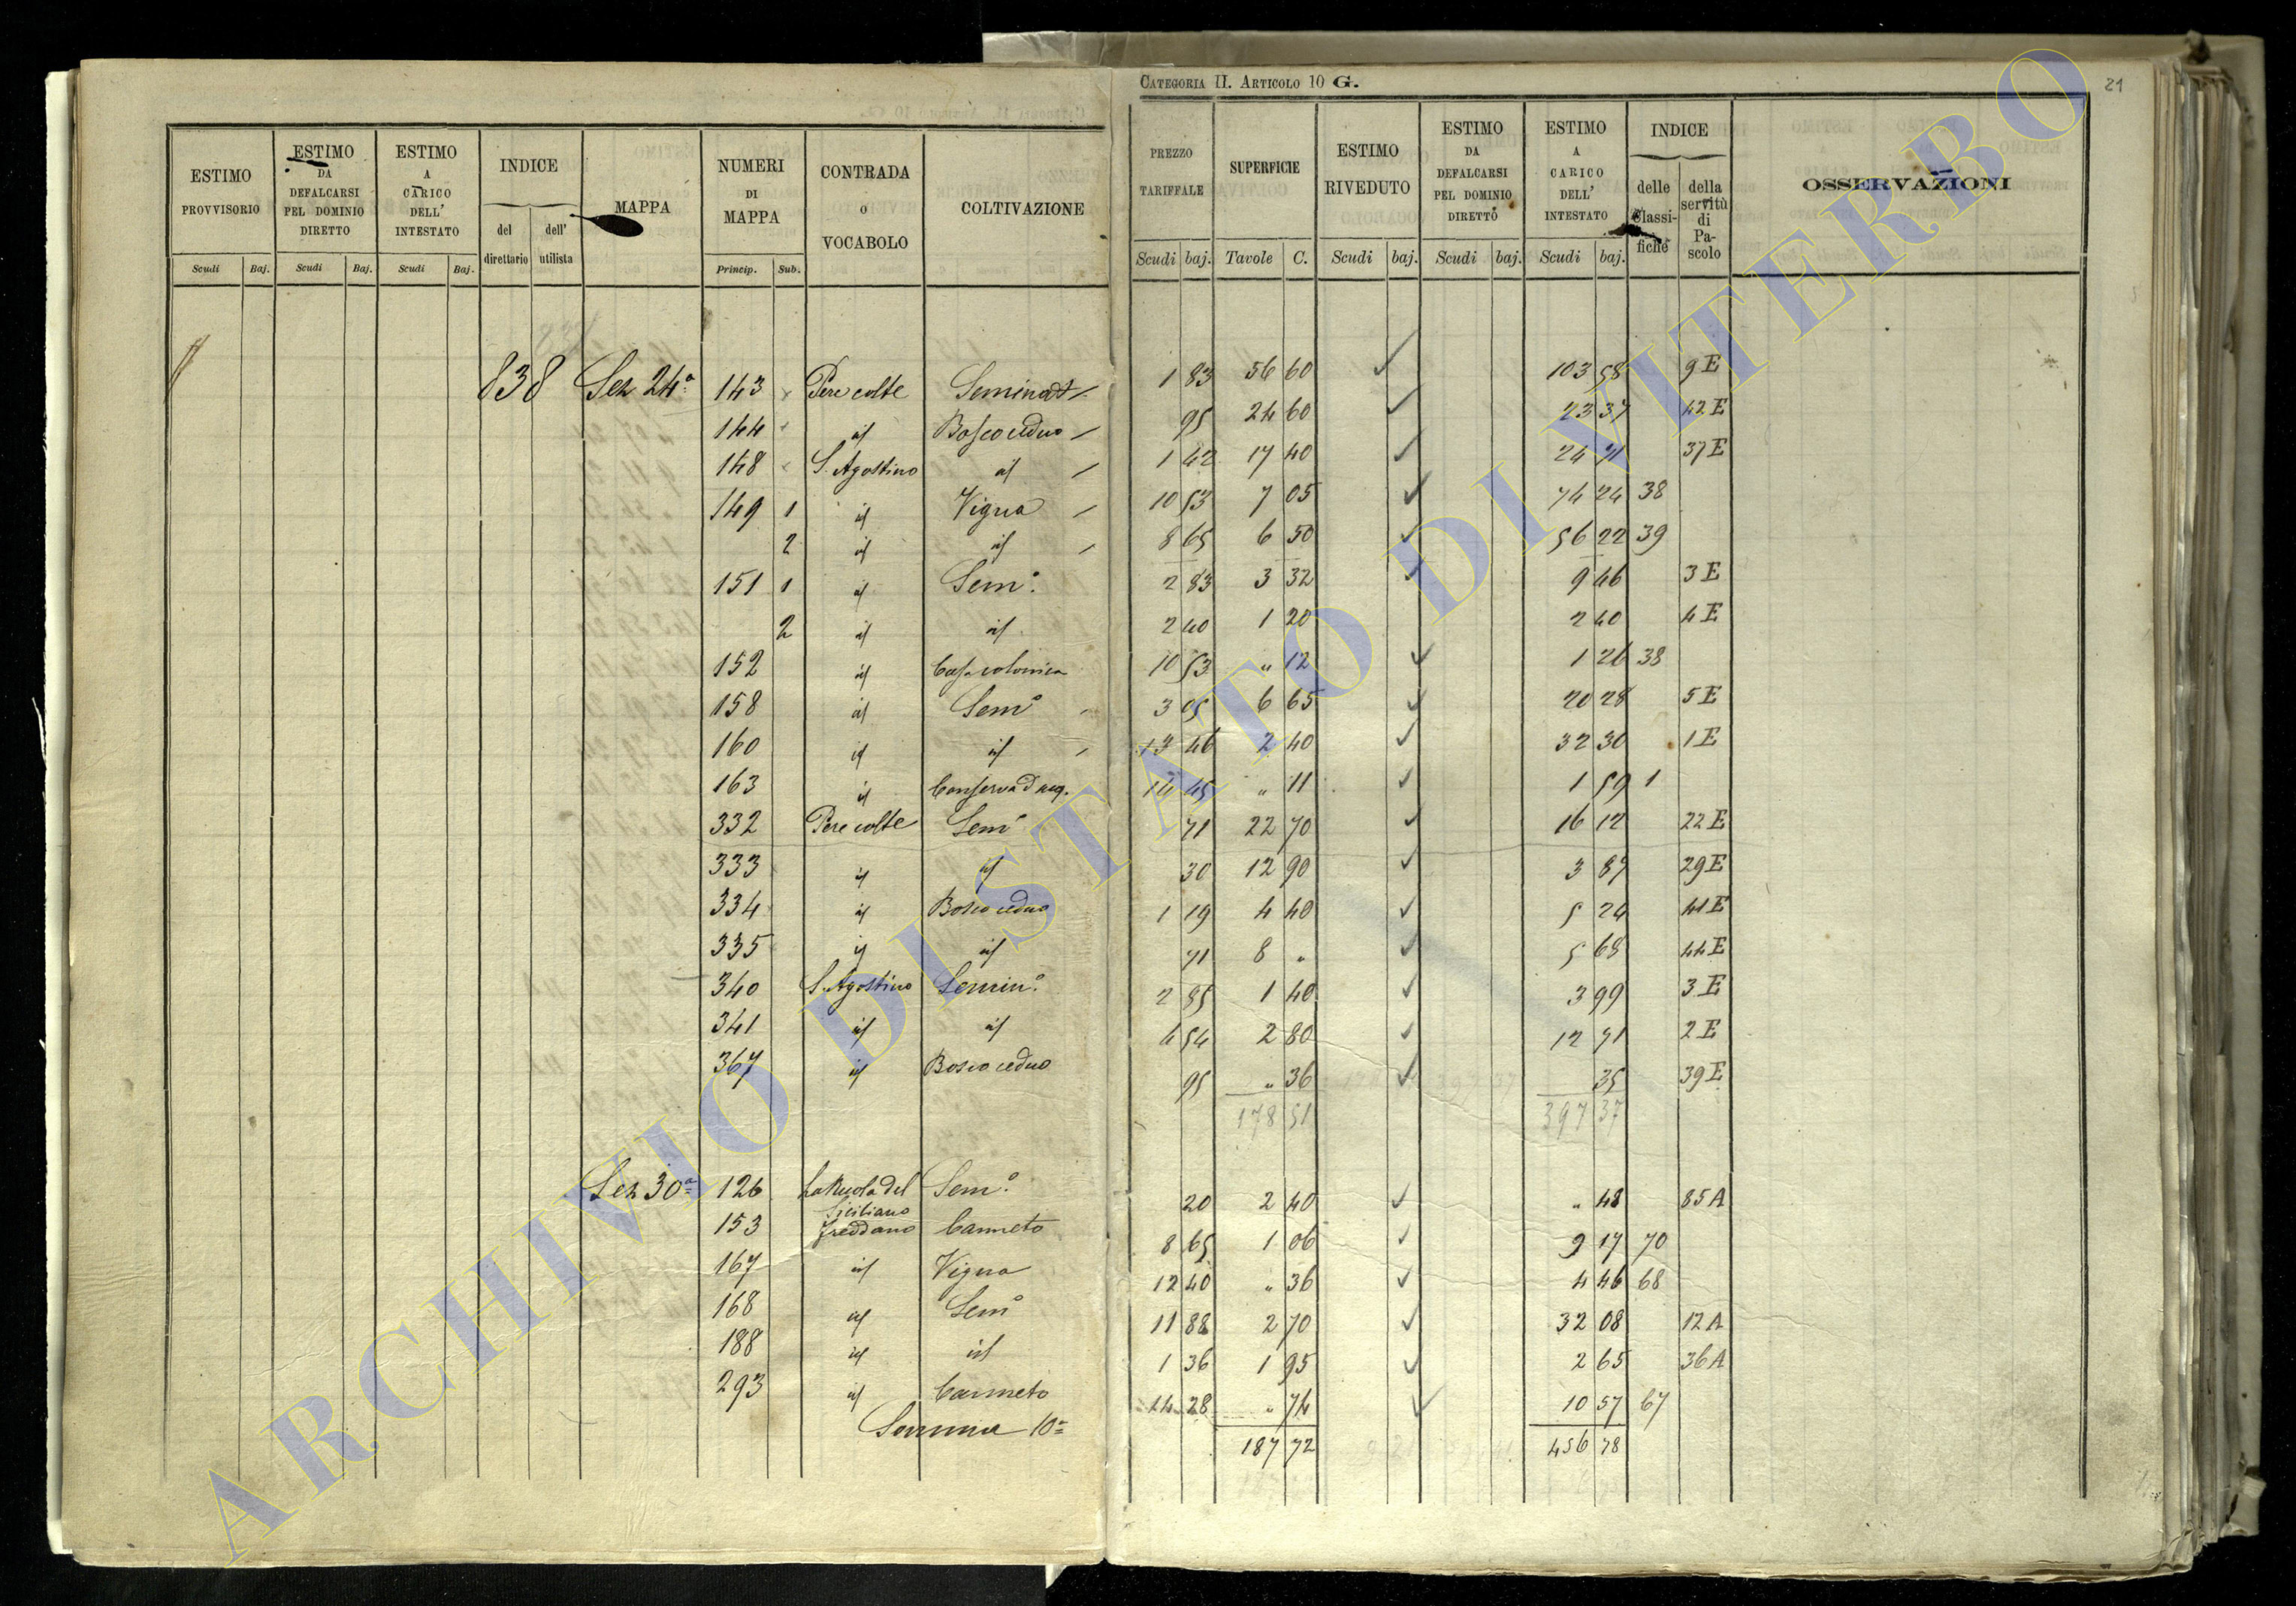 CATEGORIA II. ARTICOLO 10 G.
21
ESTIMO PROVVISORIO
ESTIMO DA DEFALCARSI PEL DOMINIO DIRETTO
ESTIMO A CARICO DELL' INTESTATO
INDICE
del direttario
dell' utilista
MAPPA
NUMERI DI MAPPA
CONTRADA o VOCABOLO
COLTIVAZIONE
PREZZO TARIFFALE
SUPERFICIE
ESTIMO RIVEDUTO
ESTIMO DA DEFALCARSI PEL DOMINIO DIRETTO
ESTIMO A CARICO DELL' INTESTATO
INDICE
delle Classifiche
della servitù di Pascolo
OSSERVAZIONI
Scudi Baj. Scudi Baj. Scudi Baj. Princip. Sub. Scudi baj. Tavole C. Scudi baj. Scudi baj. Scudi baj.
838 Sez 24ª 143 Pere colte Seminat 1 83 56 60 103 58 9 E
144 id Bosco ceduo 95 24 60 23 37 42 E
148 S. Agostino id 1 42 17 40 24 71 37 E
149 1 id Vigna 10 53 7 05 74 24 38
2 id id 8 65 6 50 56 22 39
151 1 id Sem.º 2 83 3 32 9 46 3 E
2 id id 2 40 1 20 2 40 4 E
152 id Casa colonica 10 53 " 12 1 26 38
158 id Semº 3 05 6 65 20 28 5 E
160 id id 13 46 2 40 32 30 1 E
163 id Conserva d'acq. 14 45 " 11 1 59 1
332 Pere colte Semº 71 22 70 16 12 22 E
333 id id 30 12 90 3 87 29 E
334 id Bosco ceduo 1 19 4 40 5 24 41 E
335 id id 71 8 " 5 68 44 E
340 S. Agostino Semin.º 2 85 1 40 3 99 3 E
341 id id 4 54 2 80 12 71 2 E
367 id Bosco ceduo 95 " 36 35 39 E
178 51 397 37
Sez 30ª 126 La Nuola del Siciliano Sem.º 20 2 40 " 48 85 A
153 Freddano Canneto 8 65 1 06 9 17 70
167 id Vigna 12 40 " 36 4 46 68
168 id Semº 11 88 2 70 32 08 12 A
188 id id 1 36 1 95 2 65 36 A
293 id Canneto 14 28 " 74 10 57 67
Somma 10= 187 72 456 78
ARCHIVIO DI STATO DI VITERBO